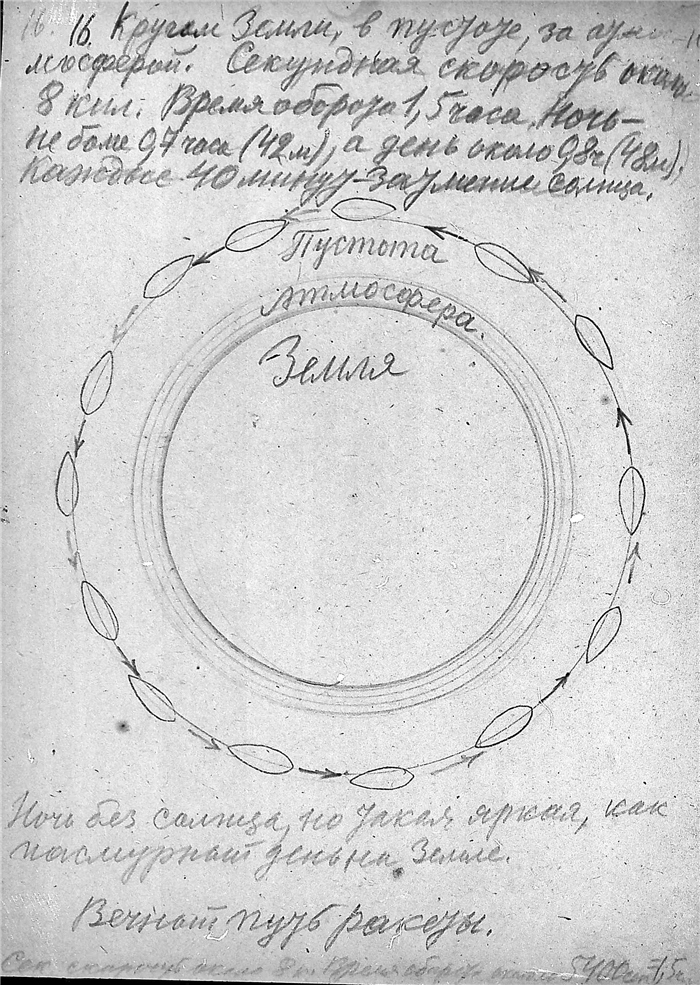 16. 16. Кругом Земли, в пустоте, за атмо-
мосферой. Секундная скорость около
8 кил. Время оборота 1,5 часа. Ночь –
не боле 0,7 часа (42 м), а день около 0,8 ч (48 м).
Каждые 40 минут – затмение солнца.
Пустота
Атмосфера.
Земля
Ночь без солнца, но такая яркая, как
пасмурный день на Земле.
Вечный путь ракеты.
Сек. скорость около 8 к. Время оборота около 5400 сек 1,5 ч.